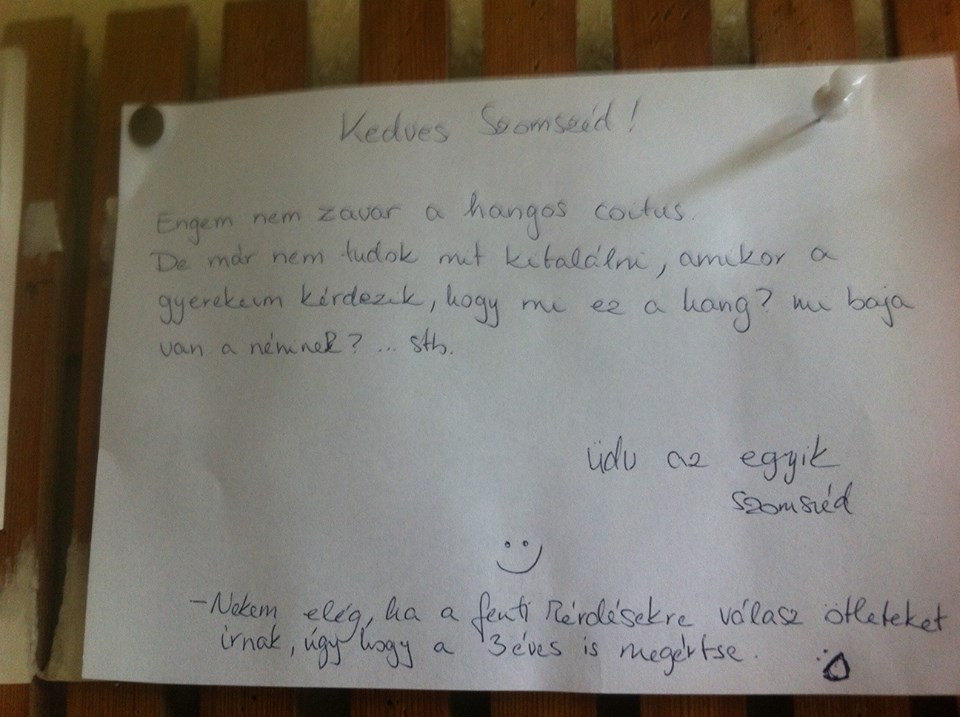 Kedves Szomszéd!
Engem nem zavar a hangos coitus.
De már nem tudok mit kitalálni, amikor a
gyerekeim kérdezik, hogy mi ez a hang? mi baja
van a néninek? ... stb.
üdv az egyik
szomszéd
-Nekem elég, ha a fenti kérdésekre válasz ötleteket
írnak, úgy hogy a 3 éves is megértse.